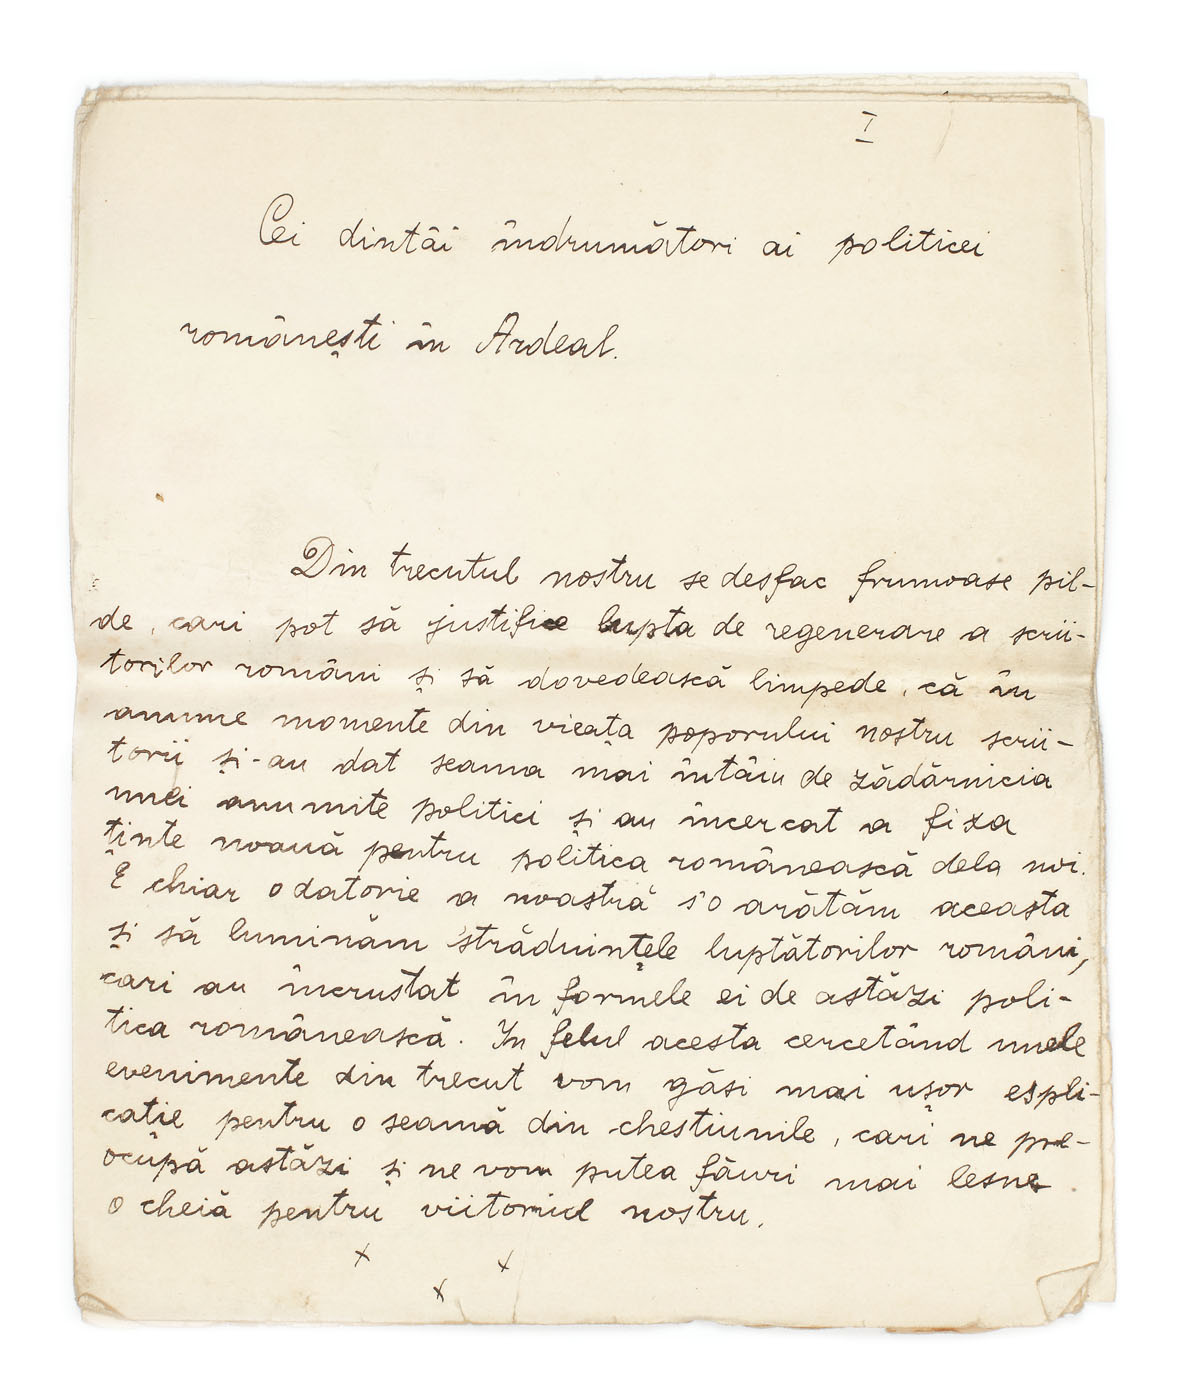 I
Cei dintâi îndrumători ai politicei
românești în Ardeal.
Din trecutul nostru se desfac frumoase pil-
de, cari pot să justifice lupta de regenerare a scrii-
torilor români și să dovedească limpede, că în
anume momente din vieața poporului nostru scrii-
torii și-au dat seama mai întâiu de zădărnicia
unei anumite politici și au încercat a fixa
ținte nouă pentru politica românească dela noi.
E chiar o datorie a noastră s'o arătăm aceasta
și să luminăm străduințele luptătorilor români,
cari au încrustat în formele ei de astăzi poli-
tica românească. In felul acesta cercetând unele
evenimente din trecut vom găsi mai ușor espli-
cație pentru o seamă din chestiunile, cari ne pre-
ocupă astăzi și ne vom putea făuri mai lesne
o cheiă pentru viitorul nostru.
x x
x